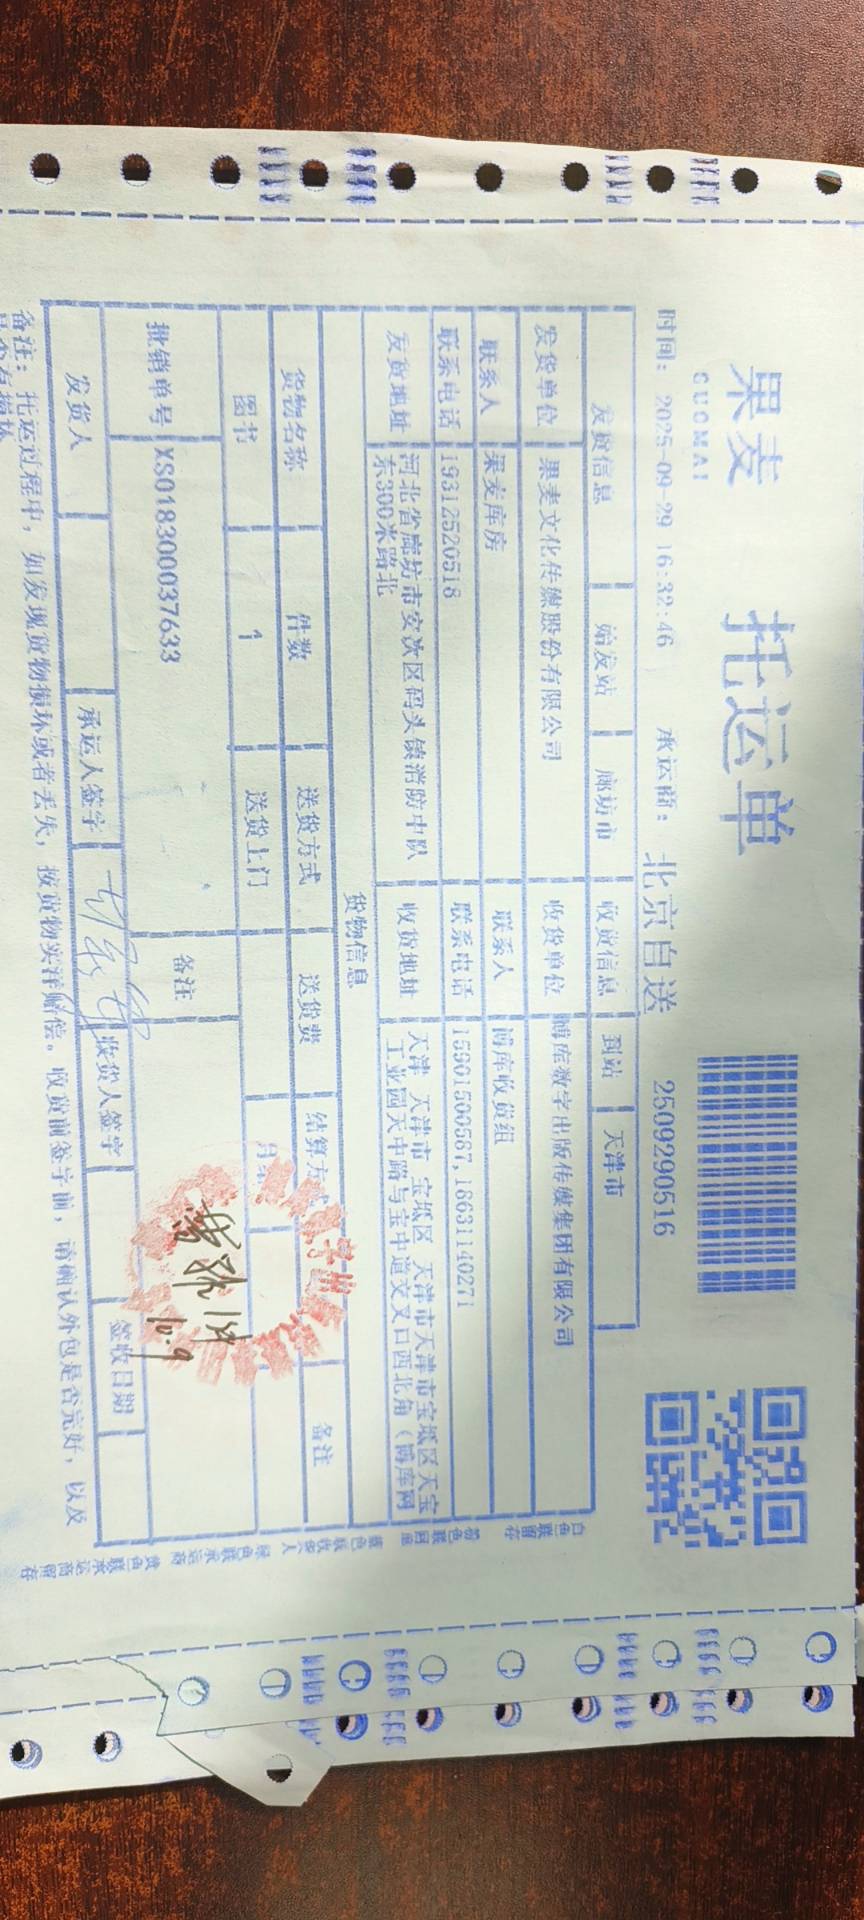 果麦
GUOMAI
托运单
时间: 2025-09-29 16:32:46 承运商: 北京自送 2509290516
发货信息 始发站 廊坊市 收货信息 到站 天津市
发货单位 果麦文化传媒股份有限公司 收货单位 博库数字出版传媒集团有限公司
联系人 果麦库房 联系人 博库收货组
联系电话 19312520518 联系电话 15901500587,18631140271
发货地址 河北省廊坊市安次区码头镇消防中队
东300米路北
收货地址 天津 天津市 宝坻区 天津市天津市宝坻区天宝
工业园天中路与宝中道交叉口西北角(博库网
货物信息
货物名称 件数 送货方式 送货费 结算方式 备注
图书 1 送货上门 月结
批销单号 XS018300037633 备注
发货人 承运人签字 收货人签字 签收日期
10.9
备注: 托运过程中, 如发现货物损坏或者丢失, 按货物实洋赔偿。收货前签字前, 请确认外包是否完好, 以及
是否有损坏
白色联留存 粉色联回单 蓝色联收货人 绿色联承运商 黄色联承运商留存